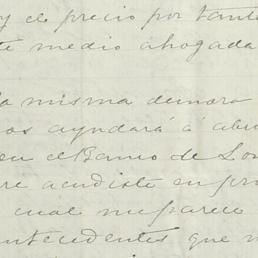 y el precio por tanto
te medio ahogada
la misma demora
os ayudará á abu
en el Banco de Lon
re acudiste en pri
cual me parece
ntecedentes que n